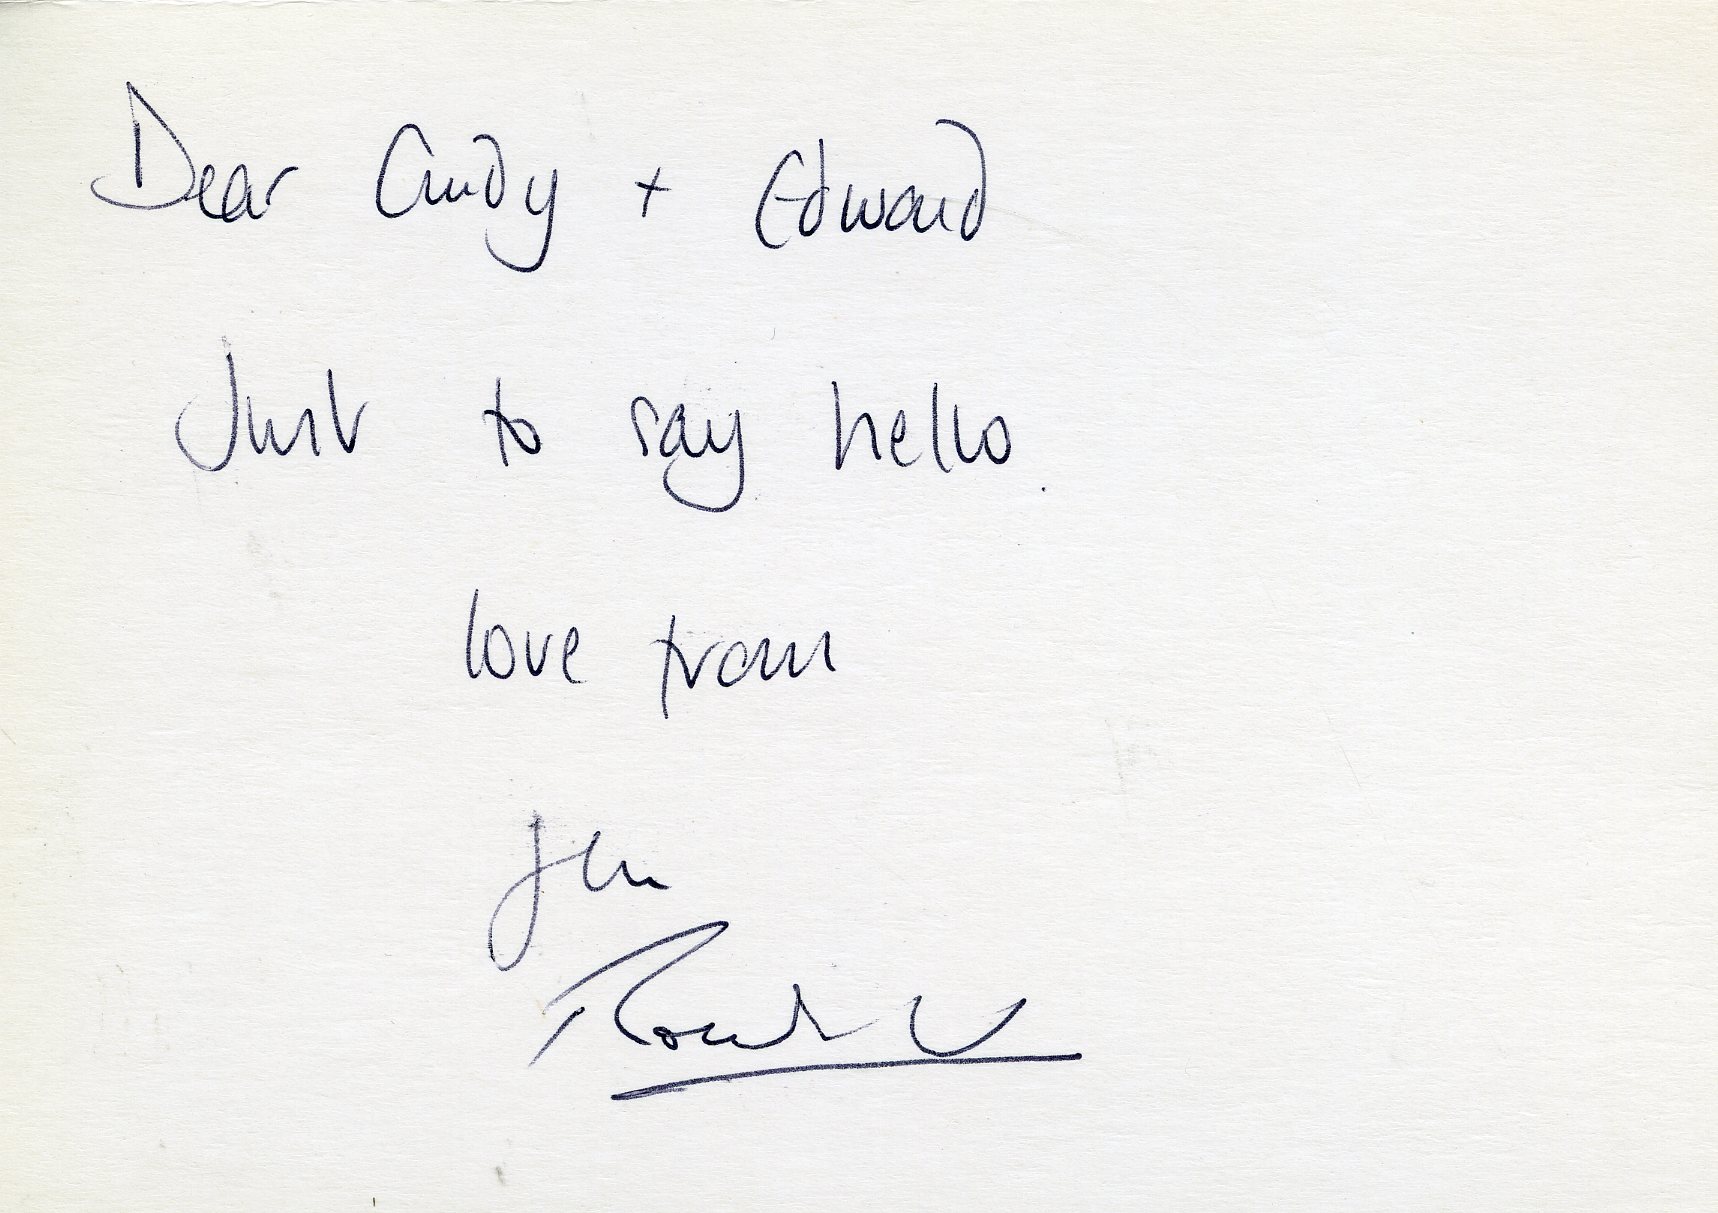 Dear Cindy + Edward
Just to say hello.
love from